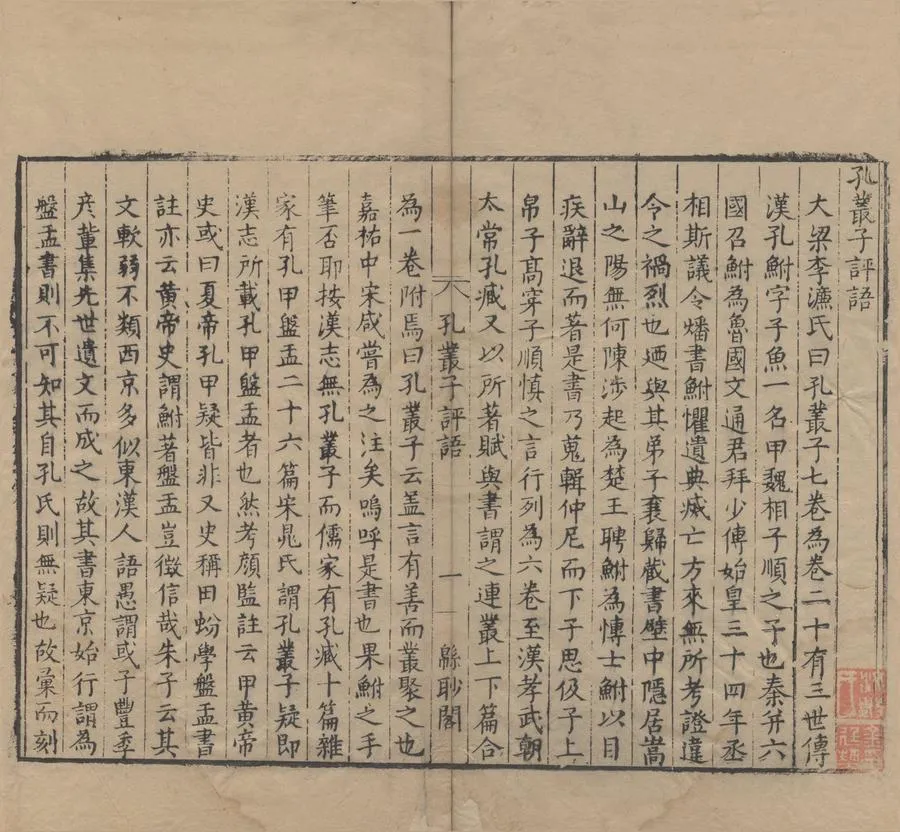 孔叢子評語
大梁李濂氏曰孔叢子七卷為卷二十有三世傳
漢孔鮒字子魚一名甲魏相子順之子也秦并六
國召鮒為魯國文通君拜少傅始皇三十四年丞
相斯議令燔書鮒懼遺典烕亡方來無所考證違
令之禍烈也迺與其弟子襄歸蔵書壁中隱居嵩
山之陽無何陳涉起為楚王聘鮒為愽士鮒以目
疾辭退而著是書乃蒐輯仲尼而下子思伋子上
帛子高穿子順慎之言行列為六卷至漢孝武朝
太常孔臧又以所著賦與書謂之連叢上下篇合
孔叢子評語 一 緜眇閣
為一卷附焉曰孔叢子云盖言有善而叢聚之也
嘉祐中宋咸嘗為之注矣嗚呼是書也果鮒之手
筆否耶按漢志無孔叢子而儒家有孔臧十篇雜
家有孔甲盤盂二十六篇宋晁氏謂孔叢子疑即
漢志所載孔甲盤盂者也然考顔監註云甲黄帝
史或曰夏帝孔甲疑皆非又史稱田蚡學盤盂書
註亦云黄帝史謂鮒著盤盂豈徴信哉朱子云其
文軟弱不類西京多似東漢人語愚謂或子豐季
彦輩集先世遺文而成之故其書東京始行謂為
盤盂書則不可知其自孔氏則無疑也故彙而刻